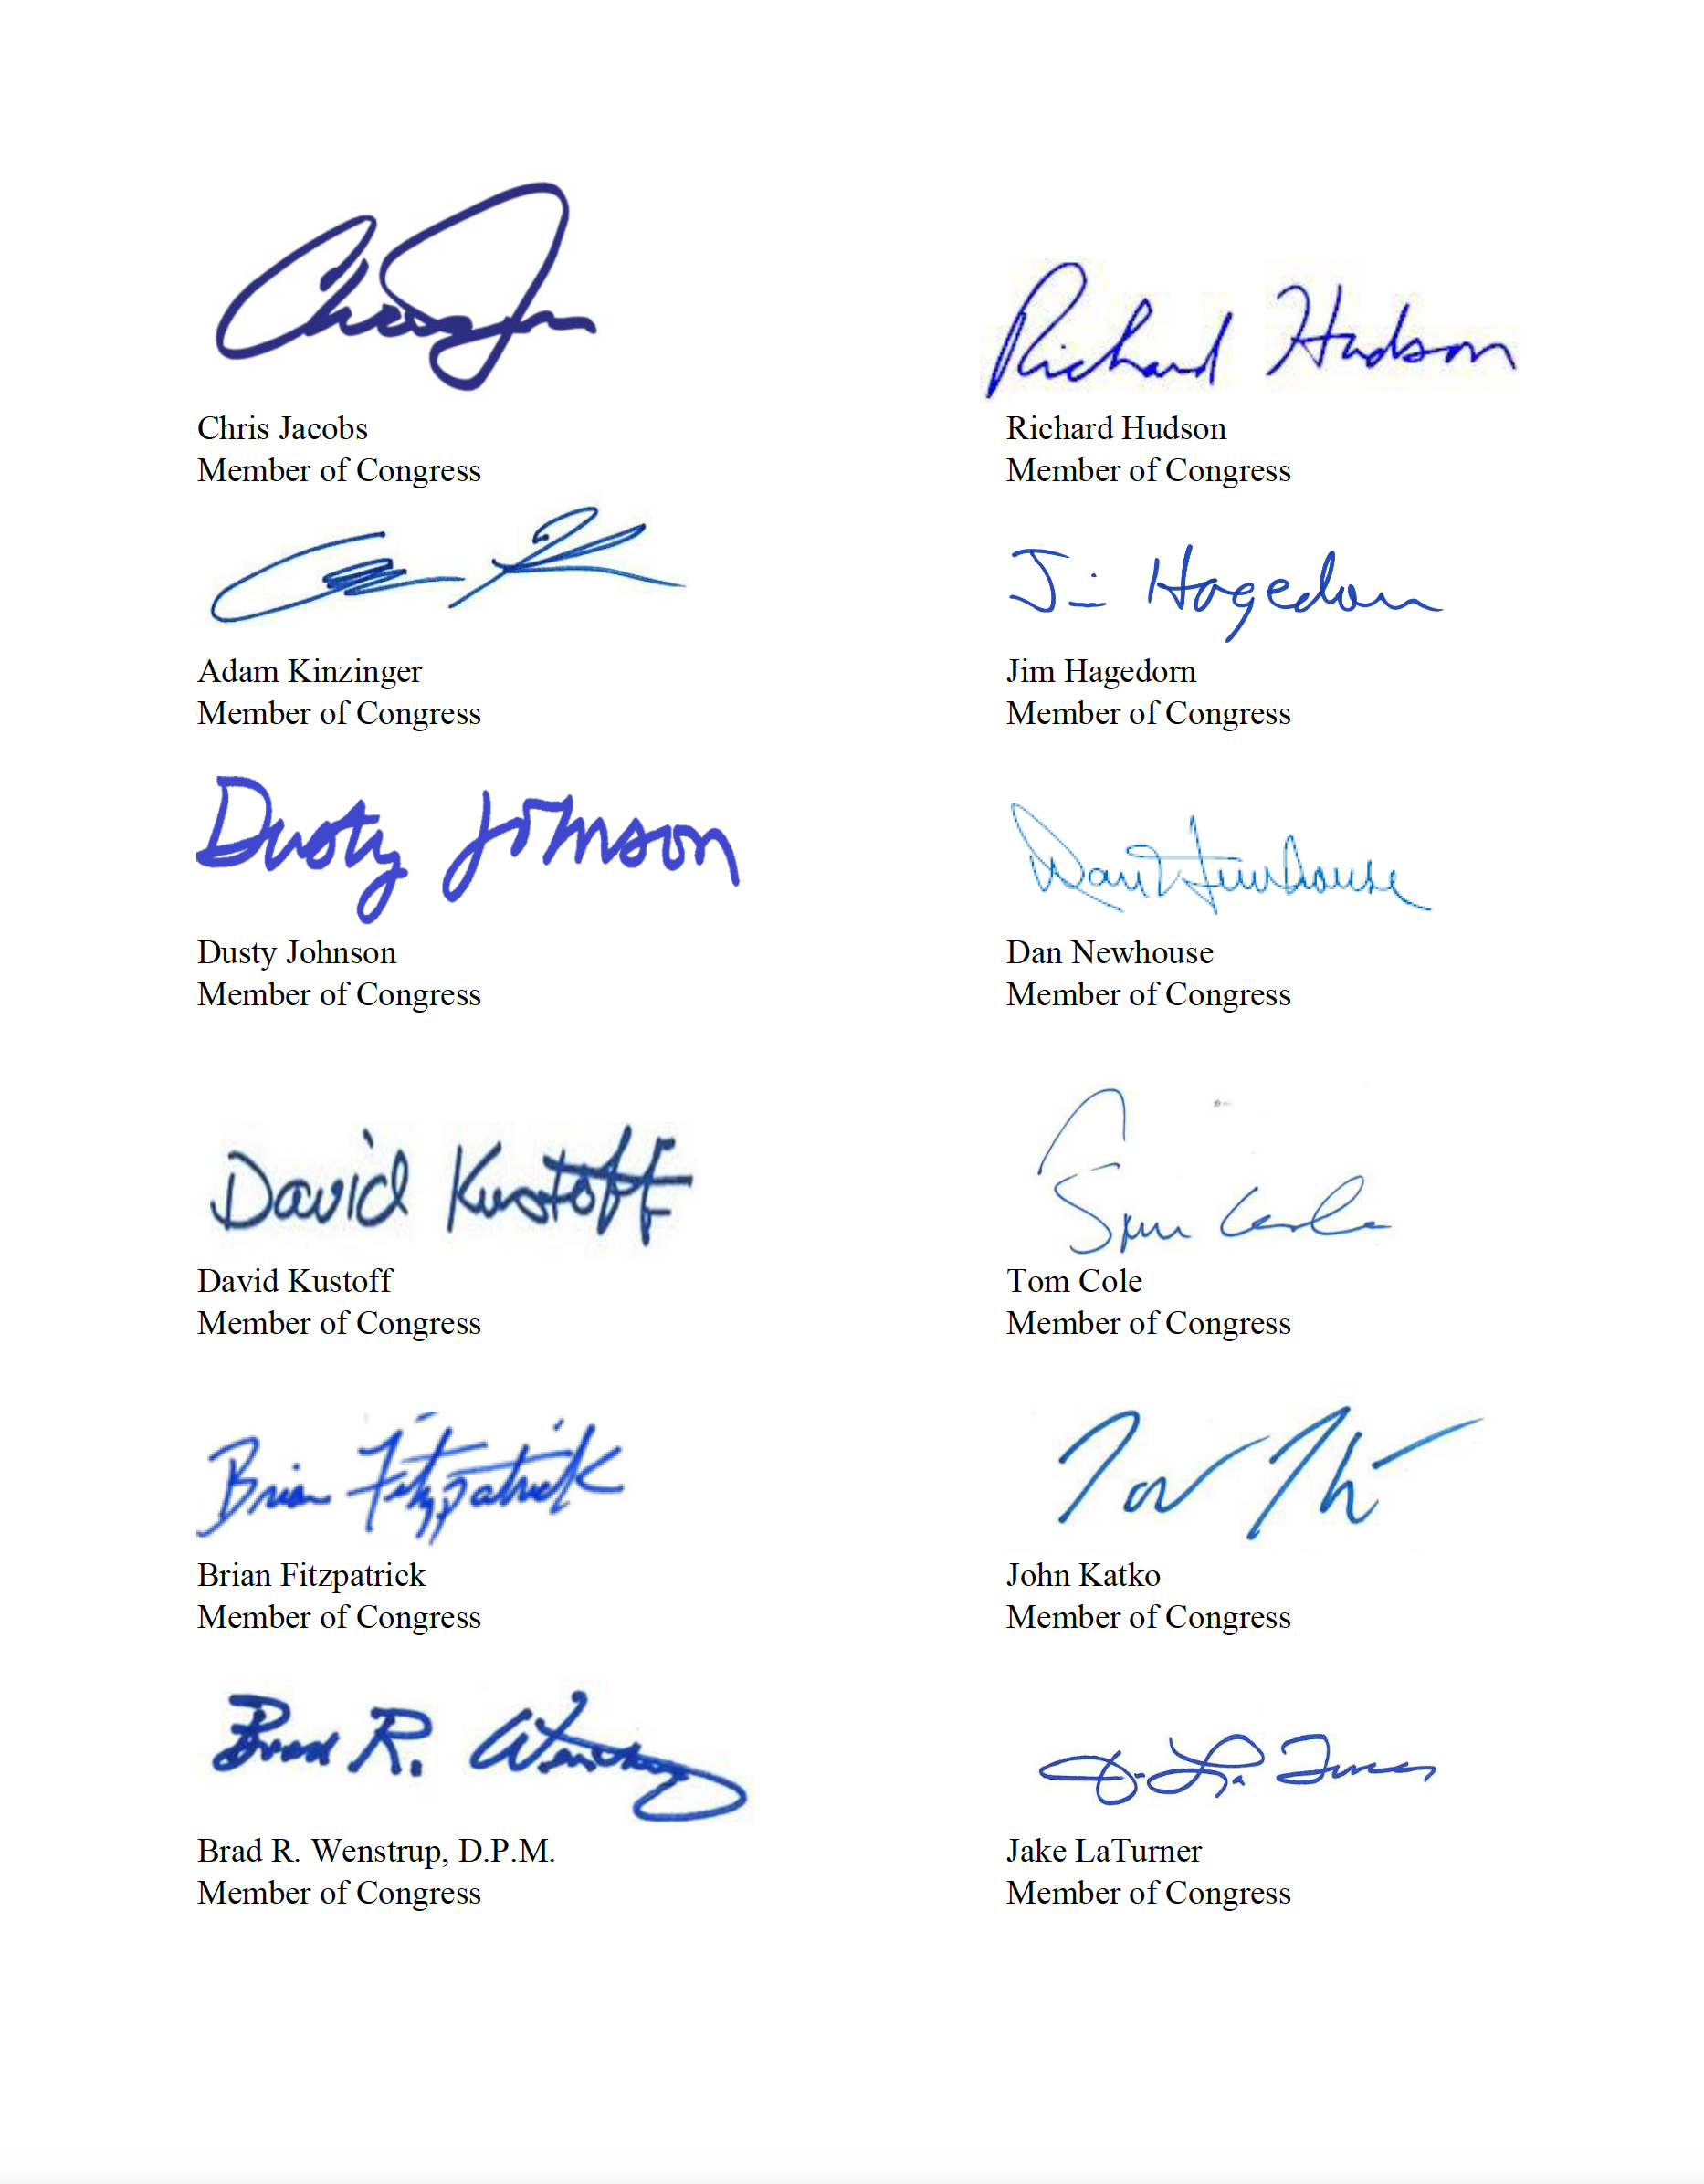 Chris Jacobs
Member of Congress
Richard Hudson
Richard Hudson
Member of Congress
Adam Kinzinger
Member of Congress
Jim Hagedorn
Jim Hagedorn
Member of Congress
Dusty Johnson
Dusty Johnson
Member of Congress
Dan Newhouse
Dan Newhouse
Member of Congress
David Kustoff
David Kustoff
Member of Congress
Tom Cole
Member of Congress
Brian Fitzpatrick
Brian Fitzpatrick
Member of Congress
John Katko
Member of Congress
Brad R. Wenstrup
Brad R. Wenstrup, D.P.M.
Member of Congress
J. LaTurner
Jake LaTurner
Member of Congress